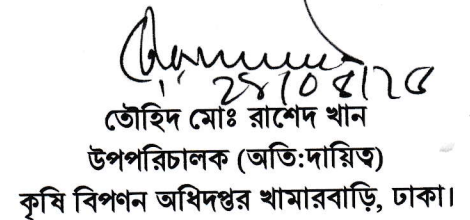 তৌহিদ মোঃ রাশেদ খান
উপপরিচালক (অতি:দায়িত্ব)
কৃষি বিপণন অধিদপ্তর খামারবাড়ি, ঢাকা।